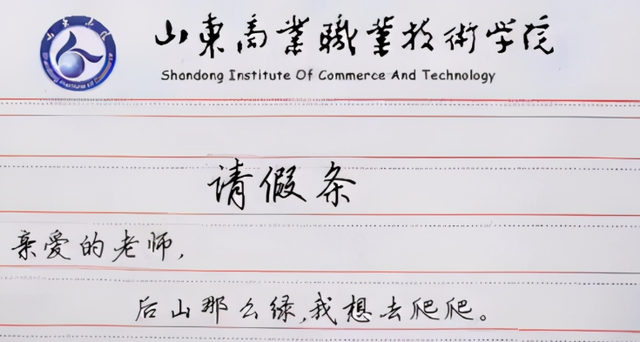 山东商业职业技術学院
Shandong Institute Of Commerce And Technology
请假条
亲爱的老师,
后山那么绿,我想去爬爬。